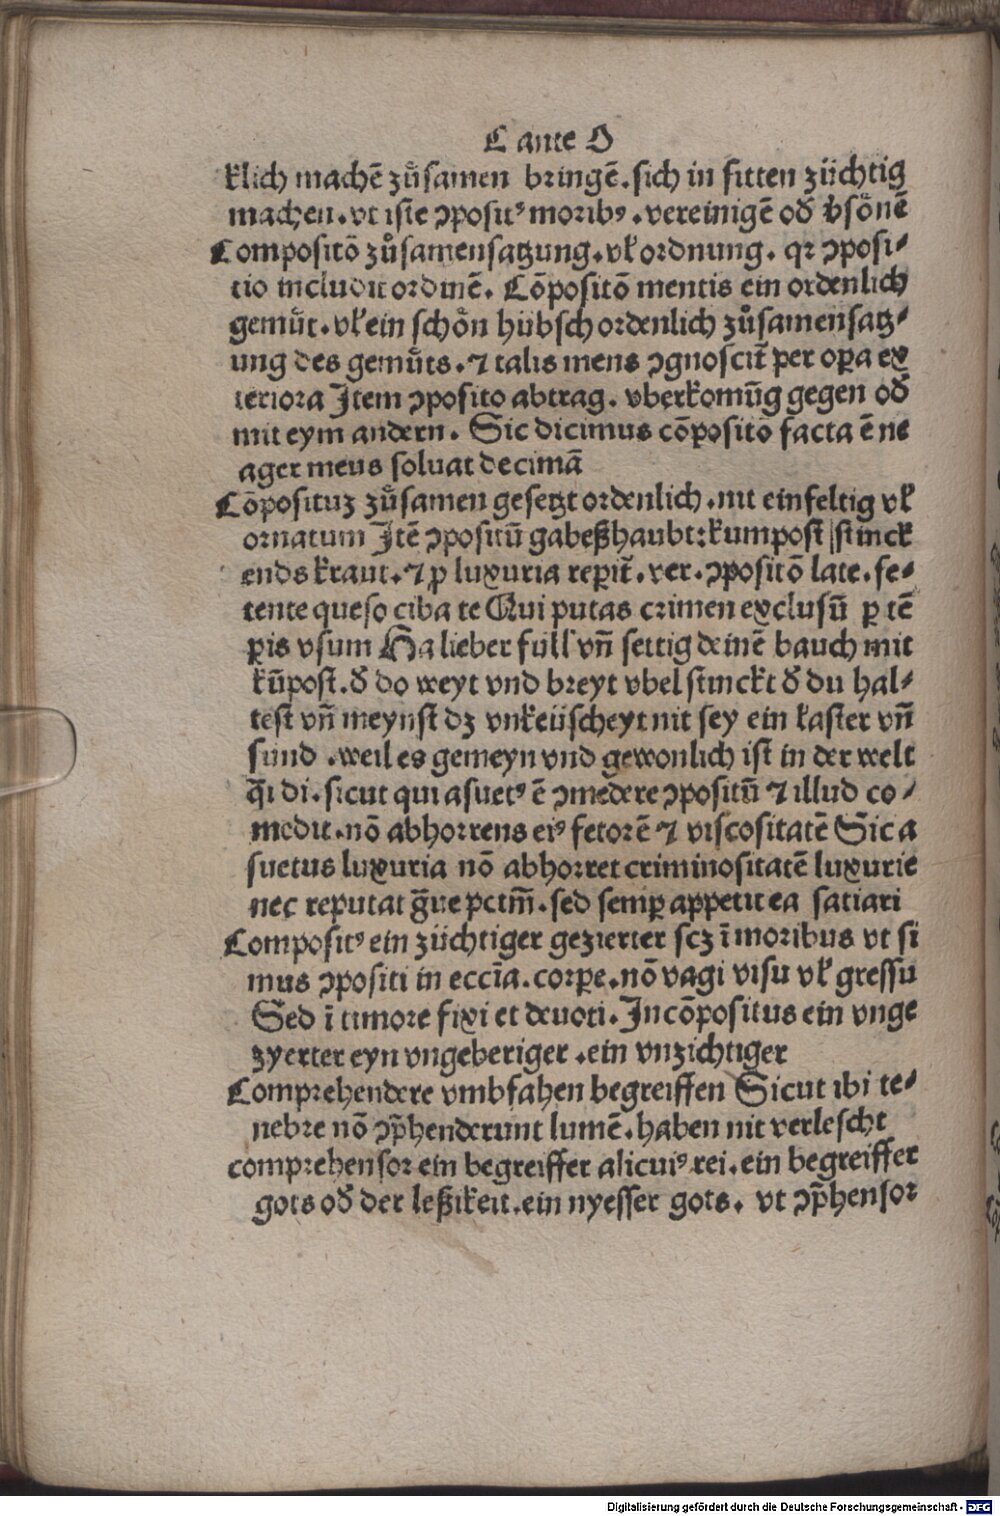 C ante O
klich machē zuͦsamen bringē. sich in sitten züchtig
machen. vt iste ↄposit⁹ morib⁹. vereinigē od̄ v̄sönē
Compositō zuͦsamensatzung. vl̕ ordnung. qꝛ ↄposi⸗
tio includit ordinē. Cōpositō mentis ein ordenlich
gemuͤt. vl̕ ein schön hübsch ordenlich zuͦsamensatz⸗
ung des gemuͤts. ⁊ talis mens ↄgnoscit̄ per opa ex
teriora Item ↄposito abtrag. vberkomūg gegen od̄
mit eym andern. Sic dicimus cōpositō facta ē ne
ager meus soluat decimā
Cōpositus zuͦsamen gesetzt ordenlich. nit einfeltig vl̕
ornatum Itē ↄpositū gabeßhaubt: kumpost stinck
ends kraut. ⁊ ꝓ luxuria reperit̄. ver. ↄpositō late. fe⸗
tente queso ciba te Qui putas crimen exclusū ꝑ tē
pis vsum Ha lieber füll vn̄ settig deinē bauch mit
kūpost. d̄ do weyt vnd breyt vbel stinckt d̄ du hal⸗
test vn̄ meynst dz vnkeüscheyt nit sey ein laster vn̄
sund. weil es gemeyn vnd gewonlich ist in der welt
q̄i di. sicut qui asuet⁹ ē ↄmedere ↄpositū ⁊ illud co⸗
medit. nō abhorrens ei⁹ fetorē ⁊ viscositatē Sic a
suetus luxuria nō abhorret criminositatē luxurie
nec reputat ḡue pctm̄. sed semꝑ appetit ea satiari
Composit⁹ ein züchtiger gezierter scz ī moribus vt si
mus ↄpositi in eccīa. corpe. nō vagi visu vl̕ gressu
Sed ī timore fixi et deuoti. Incōpositus ein vnge
zyerter eyn vngeberiger. ein vnzichtiger
Comprehendere vmbfahen begreiffen Sicut ibi te⸗
nebre nō ↄp̄henderunt lumē. haben nit verlescht
comprehensor ein begreiffer alicui⁹ rei. ein begreiffer
gots od̄ der leßikeit. ein nyesser gots. vt ↄp̄hensor
Digitalisierung gefördert durch die Deutsche Forschungsgemeinschaft - DFG